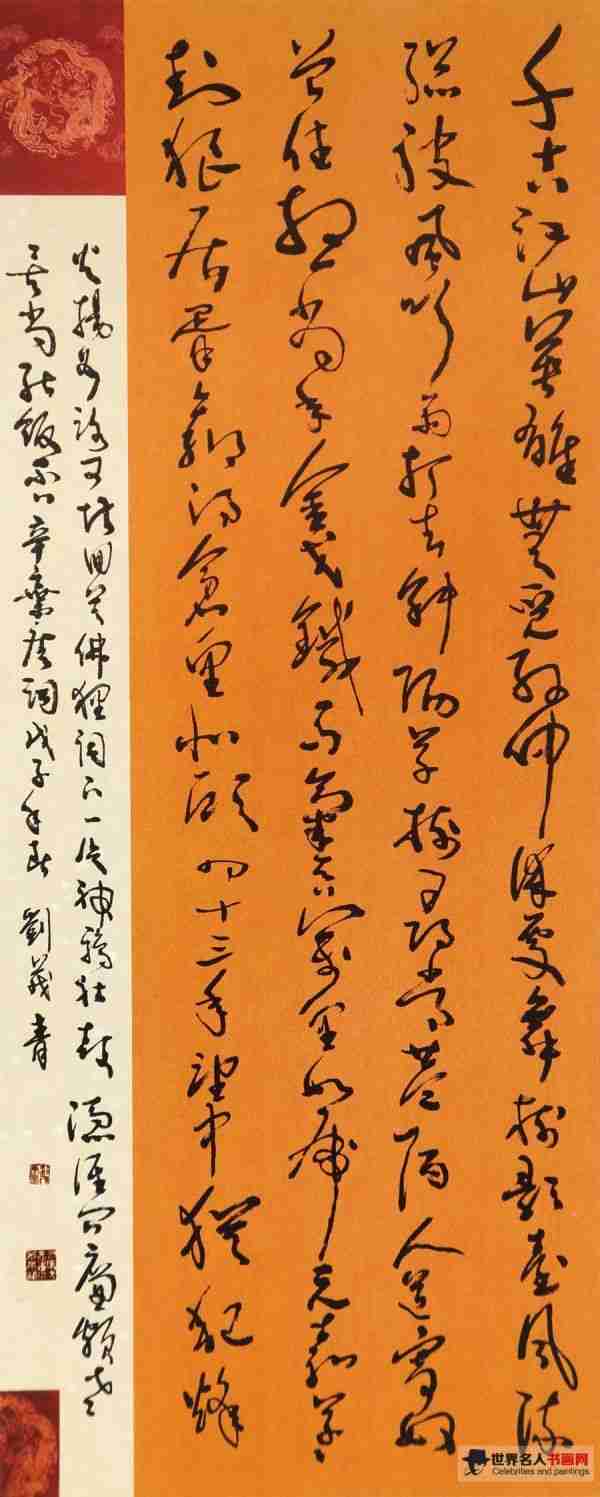 千古江山英雄無覓孫仲謀處舞榭歌臺風流
總被風吹雨打去斜陽草樹尋常巷陌人道寄奴
曾住想當年金戈鐵馬氣吞萬里如虎元嘉草草
封狼居胥贏得倉皇北顧四十三年望中猶記烽
火揚州路可堪回首佛狸祠下一片神鴉社鼓憑誰問廉頗老
矣尚能飯否 辛棄疾詞戊子年 劉青
世界名人书画网
Celebrities and paintings